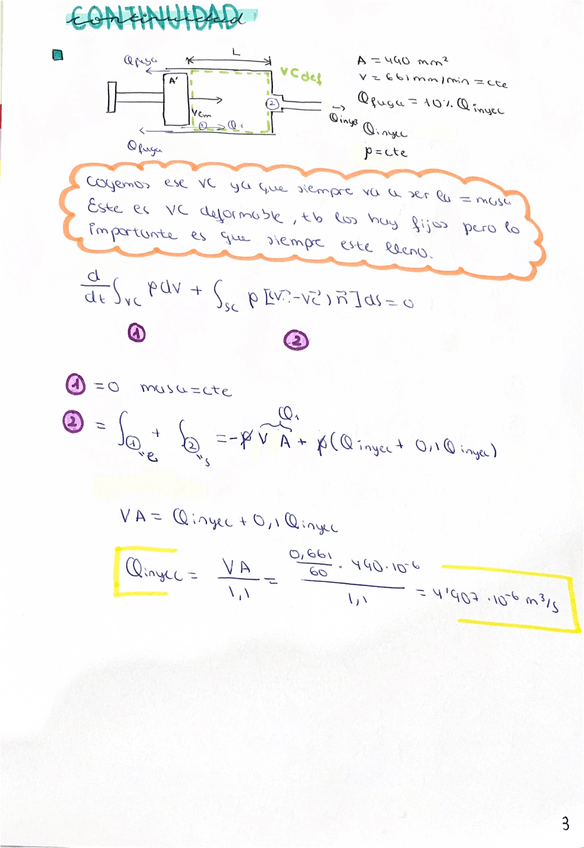 CONTINUIDAD
continuidad
Qfuga
L
VCdef
A = 490 mm²
V = 661 mm/min = cte
Qfuga = 10% Qinyec
Qinyec
ρ = cte
A'
Vem
① → Q₁
②
Qinyec
Qfuga
Cogemos ese VC ya que siempre va a ser la = masa
Este es VC deformable, tb los hay fijos pero lo
importante es que siempre este lleno.
d/dt ∫VC ρdv + ∫SC ρ[(v⃗ - v⃗c) n⃗] ds = 0
① ②
① = 0 masa = cte
Q₁
② = ∫① "e + ∫② "s = -ρ V A + ρ(Qinyec + 0,1 Qinyec)
VA = Qinyec + 0,1 Qinyec
Qinyec = VA/1,1 = (0,661/60 · 490·10⁻⁶)/1,1 = 4'907 · 10⁻⁶ m³/s
3